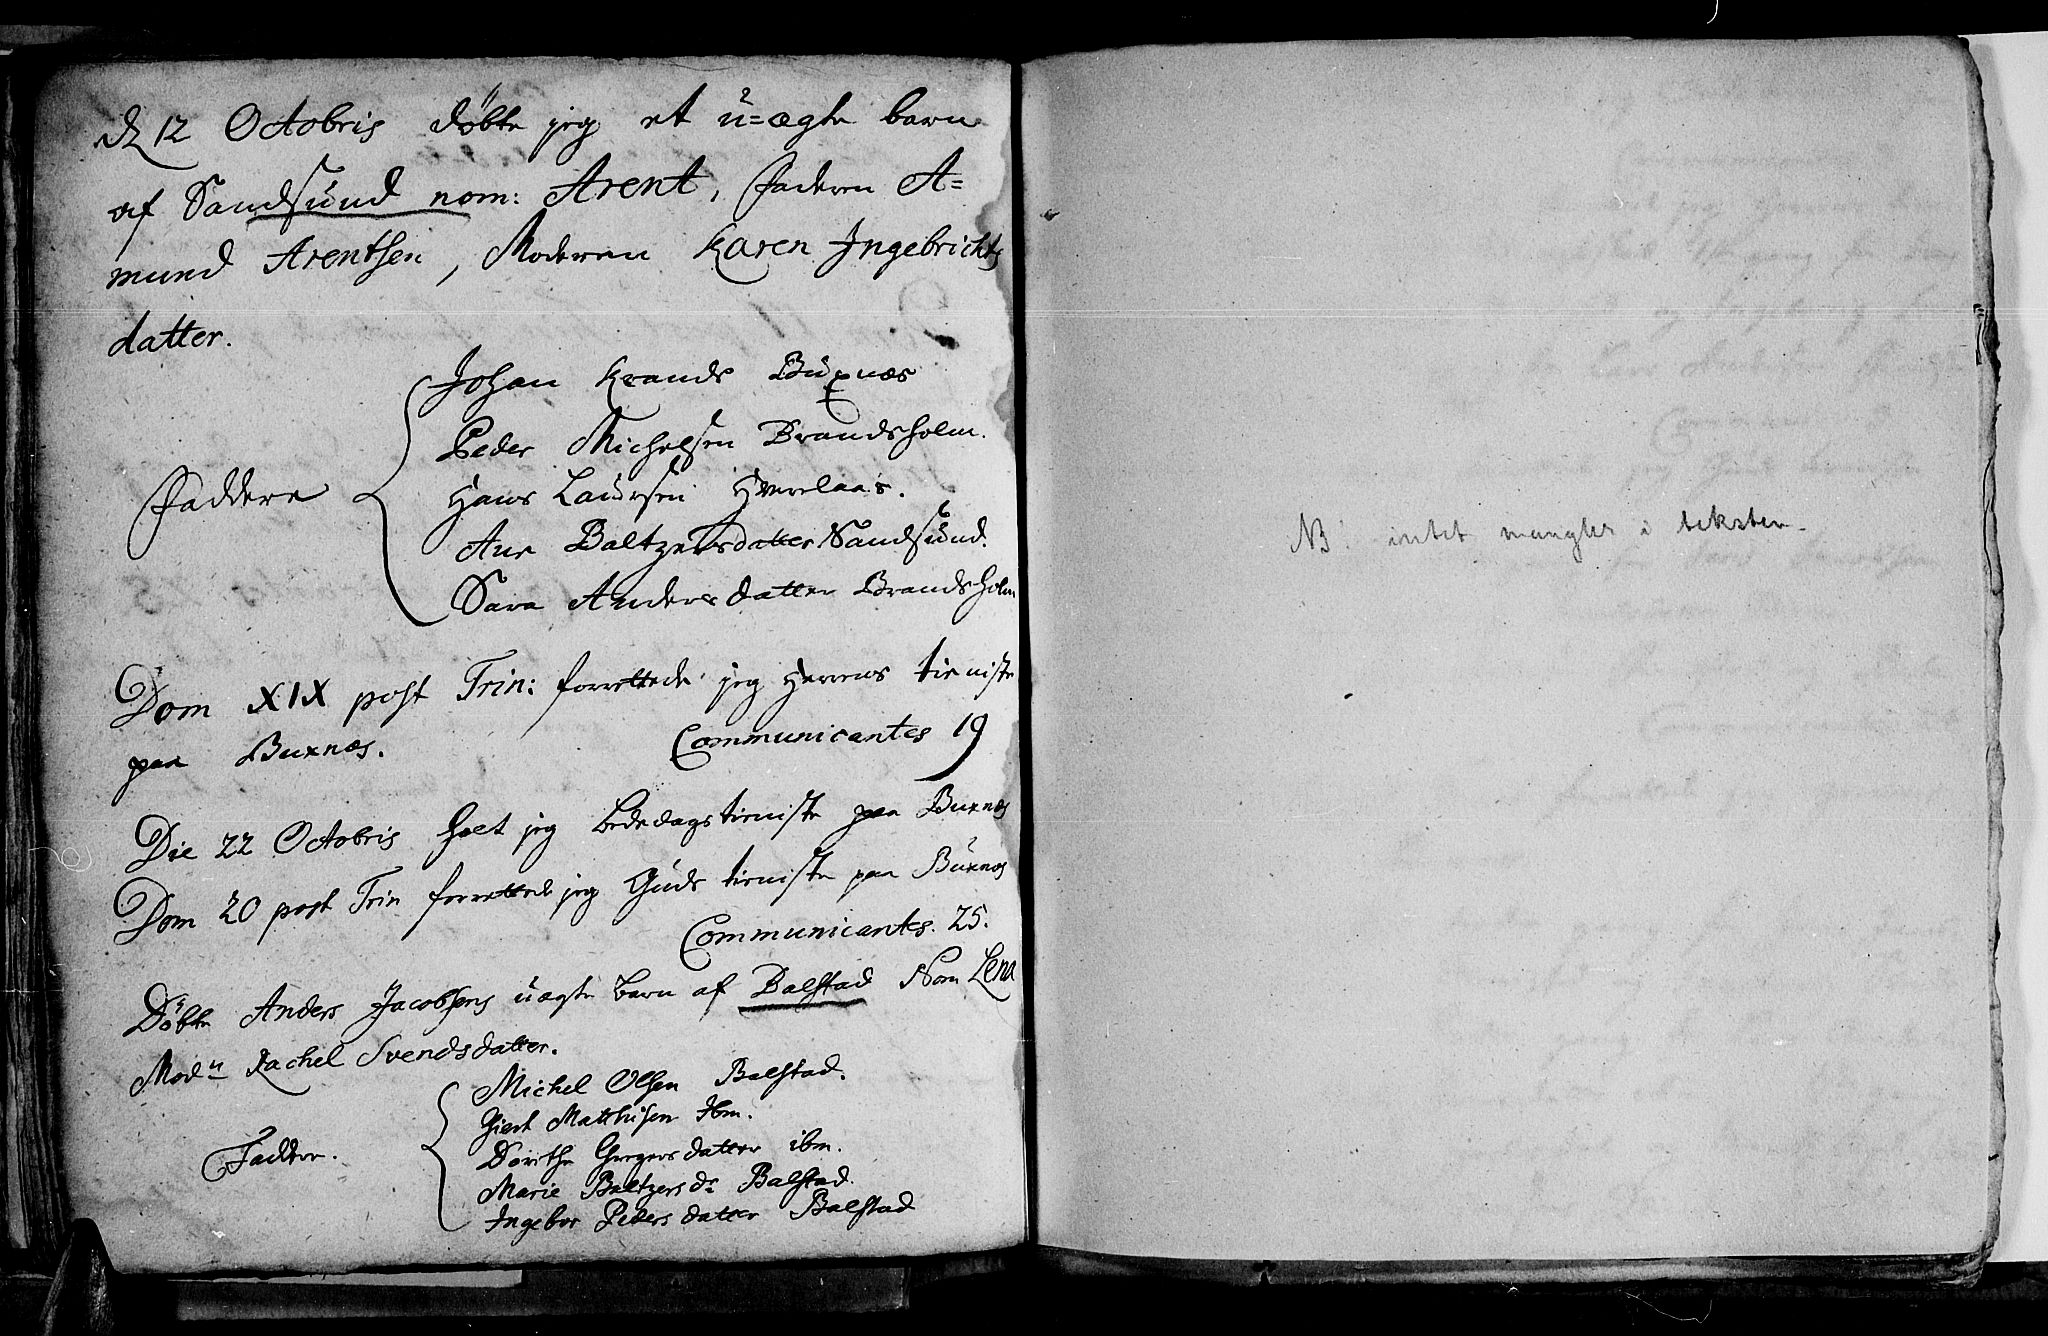 d 12 Octobris døbte jeg et ü=ægte barn
af Sandsünd nom: Arent, Faderen A=
mund Arentsen, Moderen Karen Ingebrichts
datter.
Johan Krands Büxnæs
Peder Michelsen Brandsholm.
Faddere
Hans Laürsen
Ane Baltzersdatter Sandsünd.
Sara Andersdatter Brandsholm
Dom XIX post Trin: forrettede jeg Herrens tieniste
paa Buxnæs. Communicantes 19
Die 22 Octobris holt jeg Bededagstieniste paa Buxnæs
Dom 20 post Trin forrettede jeg Güds tieniste paa Büxnæs
Communicantes. 25.
Døbte Anders Jacobsens üægte barn af Balstad Nom Lena
Modn Rachel Svendsdatter.
Michel Olsen Balstad.
Giert Matthisen Ibm.
Faddere.
Dorthe Gregersdatter ibm.
Marie Baltzersdr Balstad.
Ingebor Pedersdatter Balstad
NB! intet mangler i teksten.